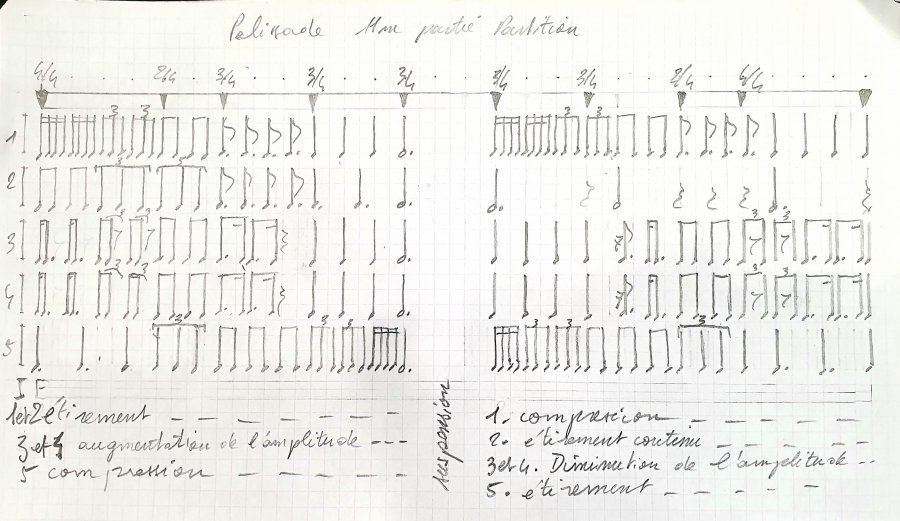 Palissade 1ère partie Partition
4/4 2/4 3/4 3/4 3/4 3/4 3/4 2/4 4/4
3 3
1
3 3
2
3 3
3
3 3
4
3 3 3
5
I F
1et2 étirement
3 et 4 augmentation de l'amplitude
5 compression
suspension
1. compression
2. étirement contenu
3et4. Diminution de l'amplitude
5. étirement